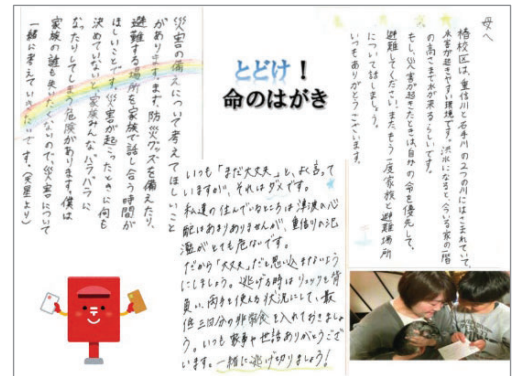 とどけ！
命のはがき
母へ
椿校区は、重信川と石手川の2つの川にはさまれていて、
水害が起きやすい環境です。洪水になると、今いる家の一階
の高さまで水が来るらしいです。
もし、災害が起きたときは、自分の命を優先して、
避難してください。またもう一度家族と避難場所
について話しましょう。
いつもありがとうございます。
災害の備えについて考えてほしいこと
があります。まず、防災グッズを備えたり、
避難する場所を家族で話し合う時間が
ほしいことです。災害が起こったときに何も
決めていないと、家族みんなバラバラに
なったりしてしまう危険があります。僕は
家族の誰も失いたくないので、災害について
一緒に考えていきたいです。
いつも「まだ大丈夫」と、よく言って
いますが、それはダメです。
私達の住んでいるところは津波の心
配はあまりありませんが、重信川の氾
濫がとても危ないです。
だから「大丈夫」だと思い込まないよう
にしましょう。逃げる時はリュックを背
負い、両手を使える状況にして、最
低三日分の非常食を入れておきましょ
う。いつも家事や世話ありがとうござ
います。一緒に逃げ切りましょう！